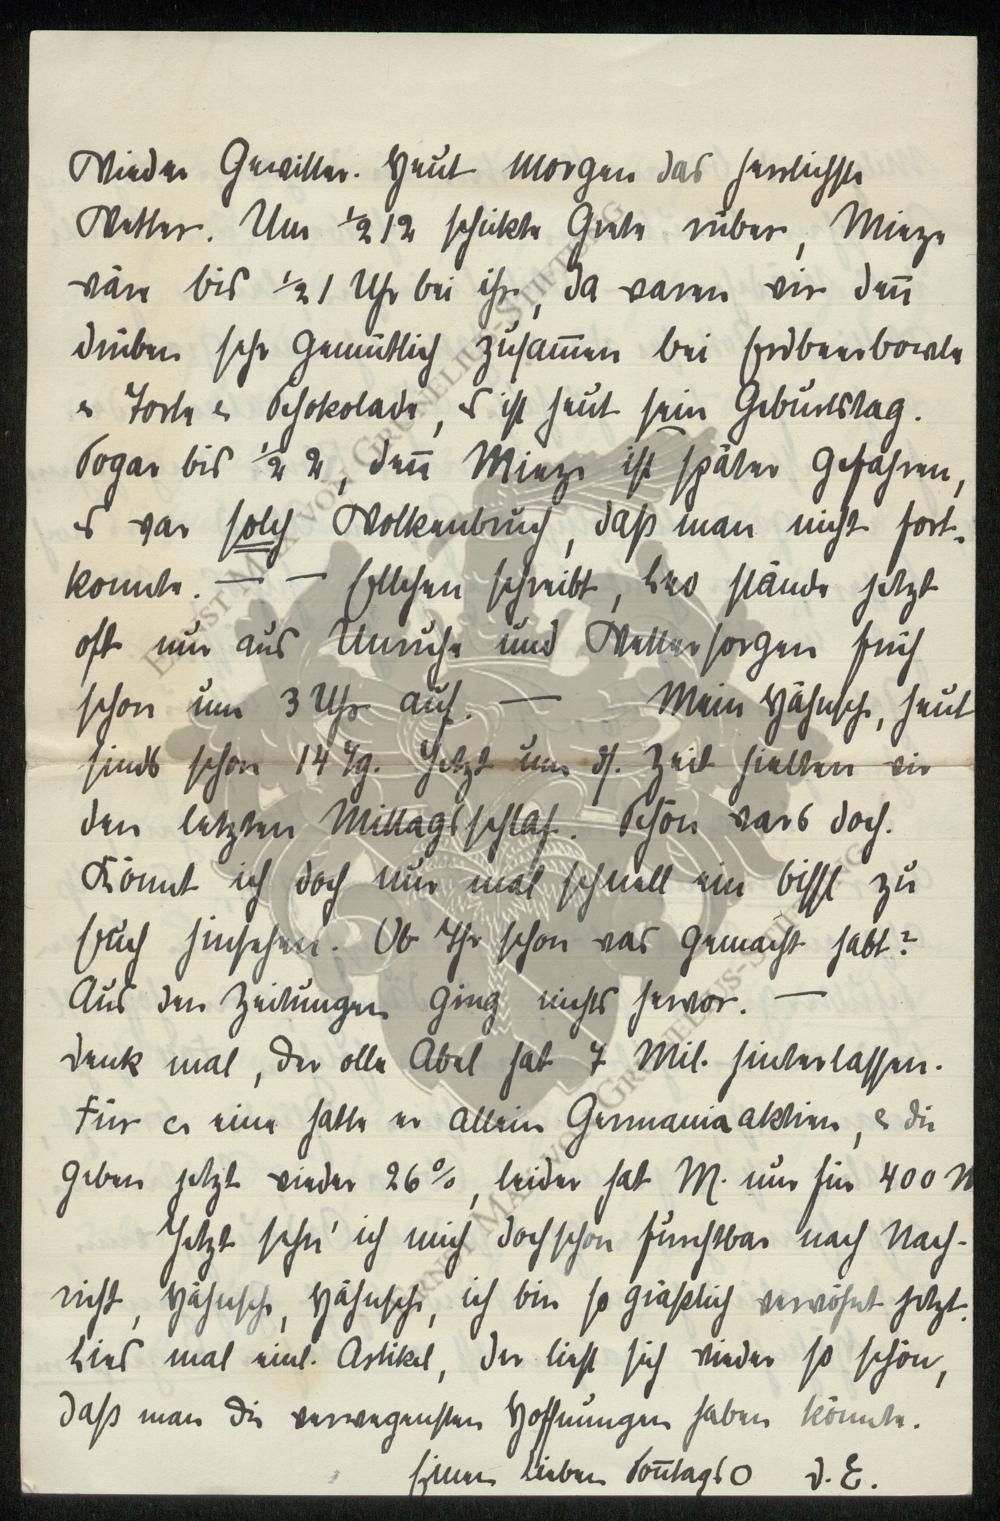 Wieder Gewitter. Heut Morgen das herrlichste
Wetter. Um ½ 12 schickte Grete rüber, Mieze
wäre bis ½ 1 Uhr bei ihr, da waren wir deñ
drüben sehr gemütlich zusam̄en bei Erdbeerbowle
u Torte u Schokolade, es ist heut sein Geburtstag.
Sogar bis ½ 2, deñ Mieze ist später gefahren,
es war solch Wolkenbruch, daß man nicht fort-
konnte. — — Ellchen schreibt, Leo stände jetzt
oft nur aus Unruhe und Wettersorgen früh
schon um 3 Uhr auf. — Mein Hähnsch, heut
sinds schon 14 Tg. Jetzt um ds. Zeit hielten wir
den letzten Mittagsschlaf. Schön wars doch.
Könnt ich doch nur mal schnell ein bissl zu
Euch hinsehen. Ob Ihr schon was gemacht habt?
Aus den Zeitungen ging nichts hervor. —
Denk mal, der olle Abel hat 7 Mil. hinterlassen.
Für eine hatte er allein Germaniaaktien, u die
geben jetzt wieder 26%, leider hat M. nur für 400 M
Jetzt sehn' ich mich doch schon furchtbar nach Nach-
richt, Hähnsch, Hähnsch, ich bin so gräßlich verwöhnt jetzt.
Lies mal einl. Artikel, der liest sich wieder so schön,
daß man die verwegensten Hoffnungen haben könnte.
Einen lieben Soñtags O d. E.
ERNST MAX VON GRUNELIUS-STIFTUNG
ERNST MAX VON GRUNELIUS-STIFTUNG